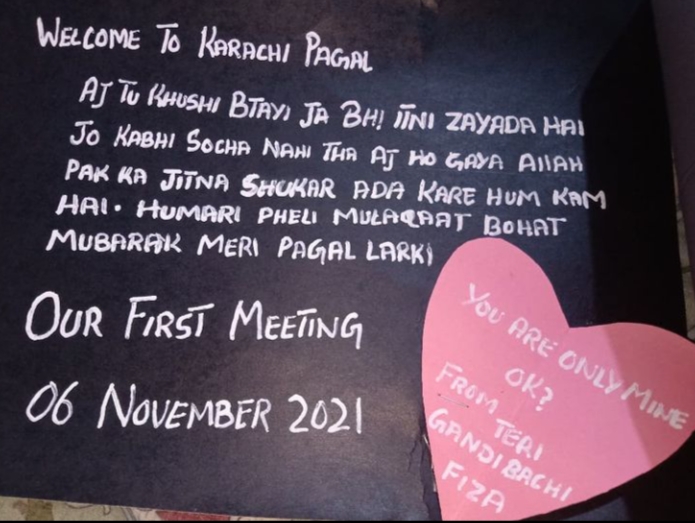 WELCOME TO KARACHI PAGAL
AJ TU KHUSHI BTAYI JA BHI ITNI ZAYADA HAI
JO KABHI SOCHA NAHI THA AJ HO GAYA AllAH
PAK KA JITNA SHUKAR ADA KARE HUM KAM
HAI. HUMARI PHELI MULAQAAT BOHAT
MUBARAK MERI PAGAL LARKI
OUR FIRST MEETING
06 NOVEMBER 2021
YOU ARE ONLY MINE
OK?
FROM TERI
GANDI BACHI
FIZA